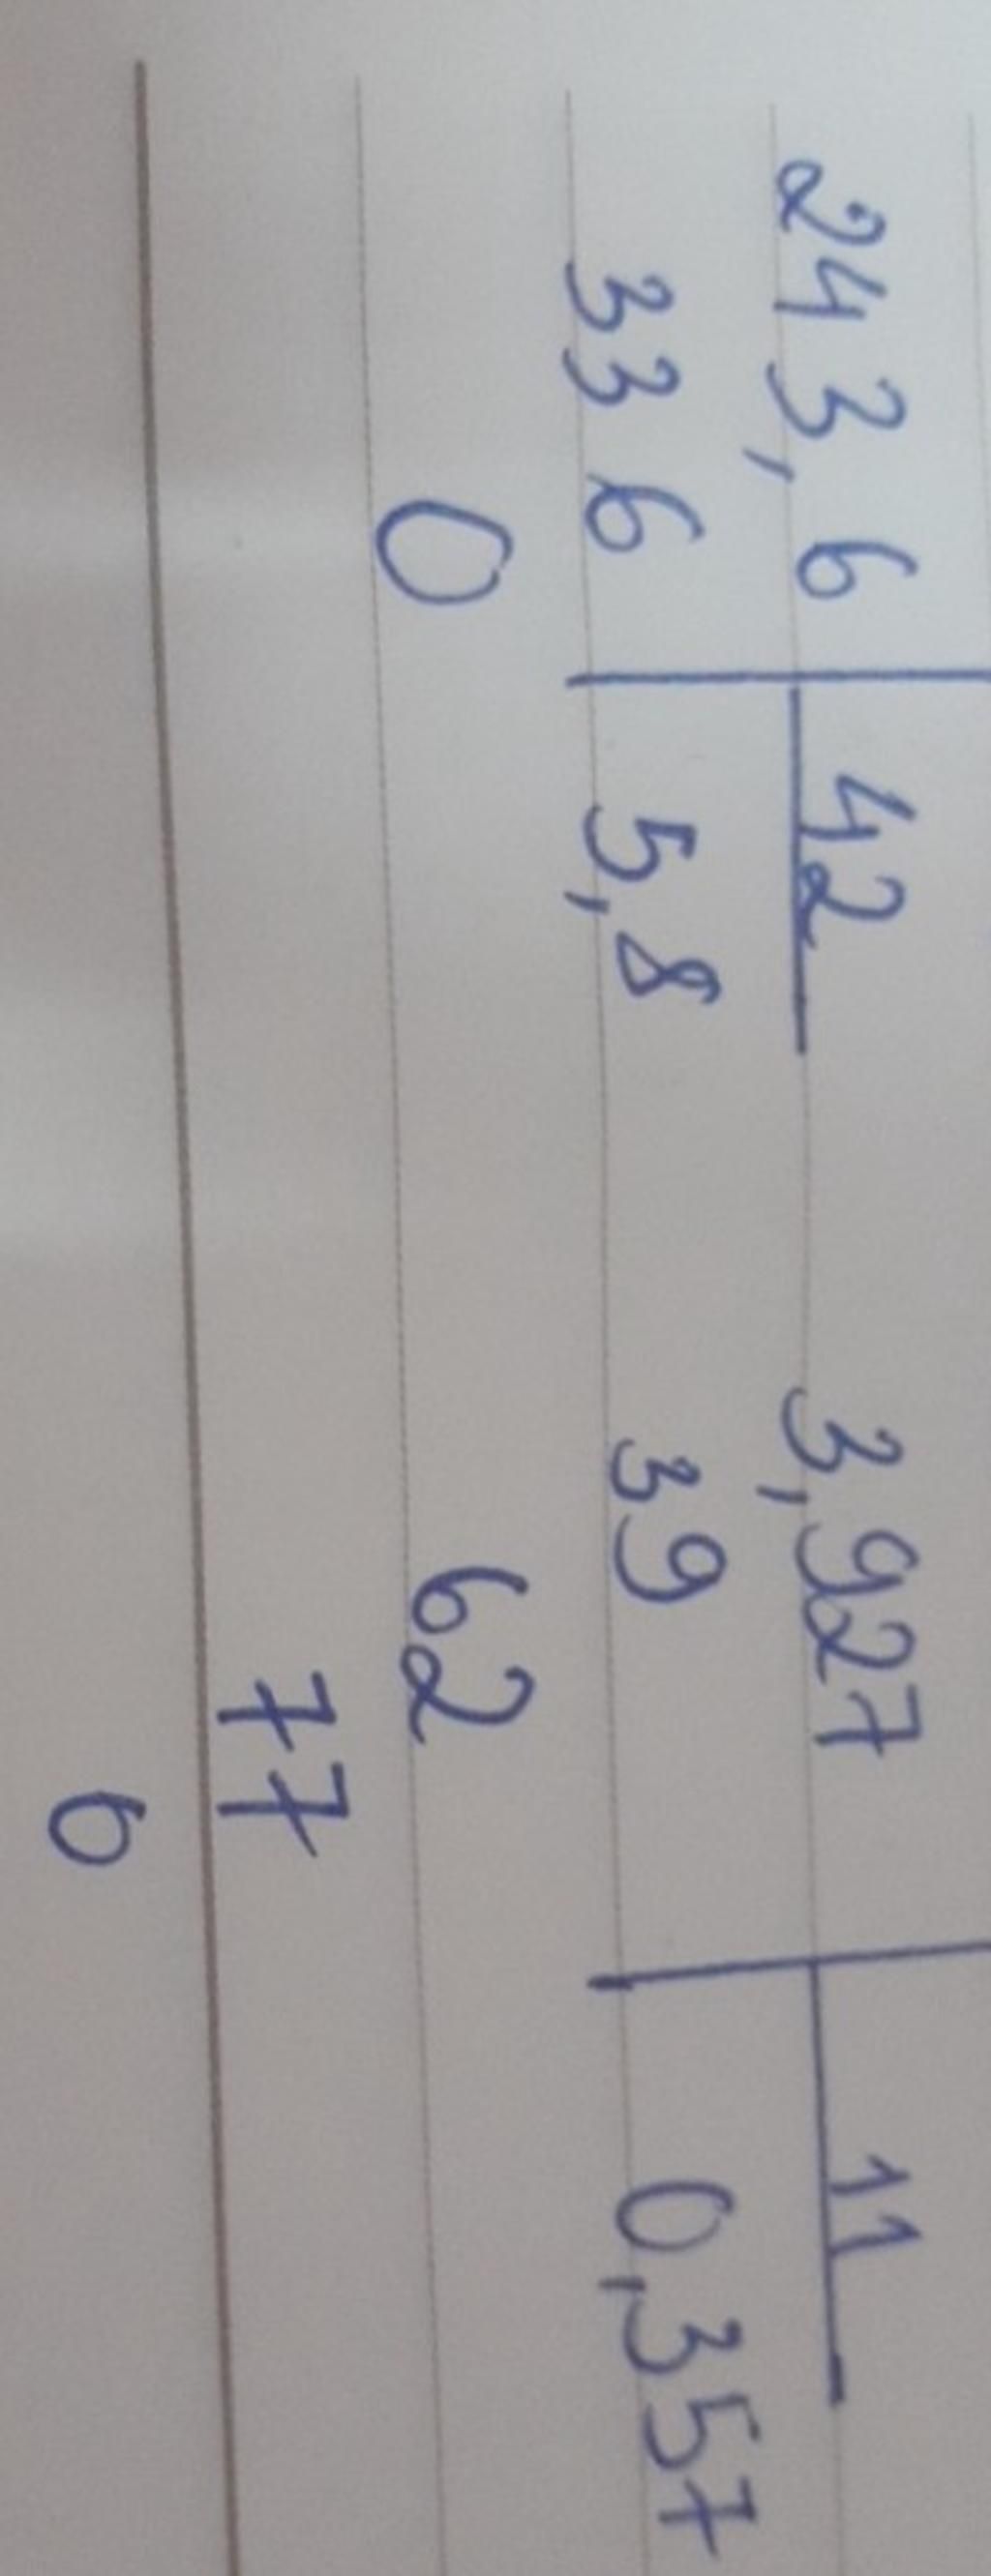 243,6 42 3,927 11
336 5,8 39 0,357
0 62
77
0